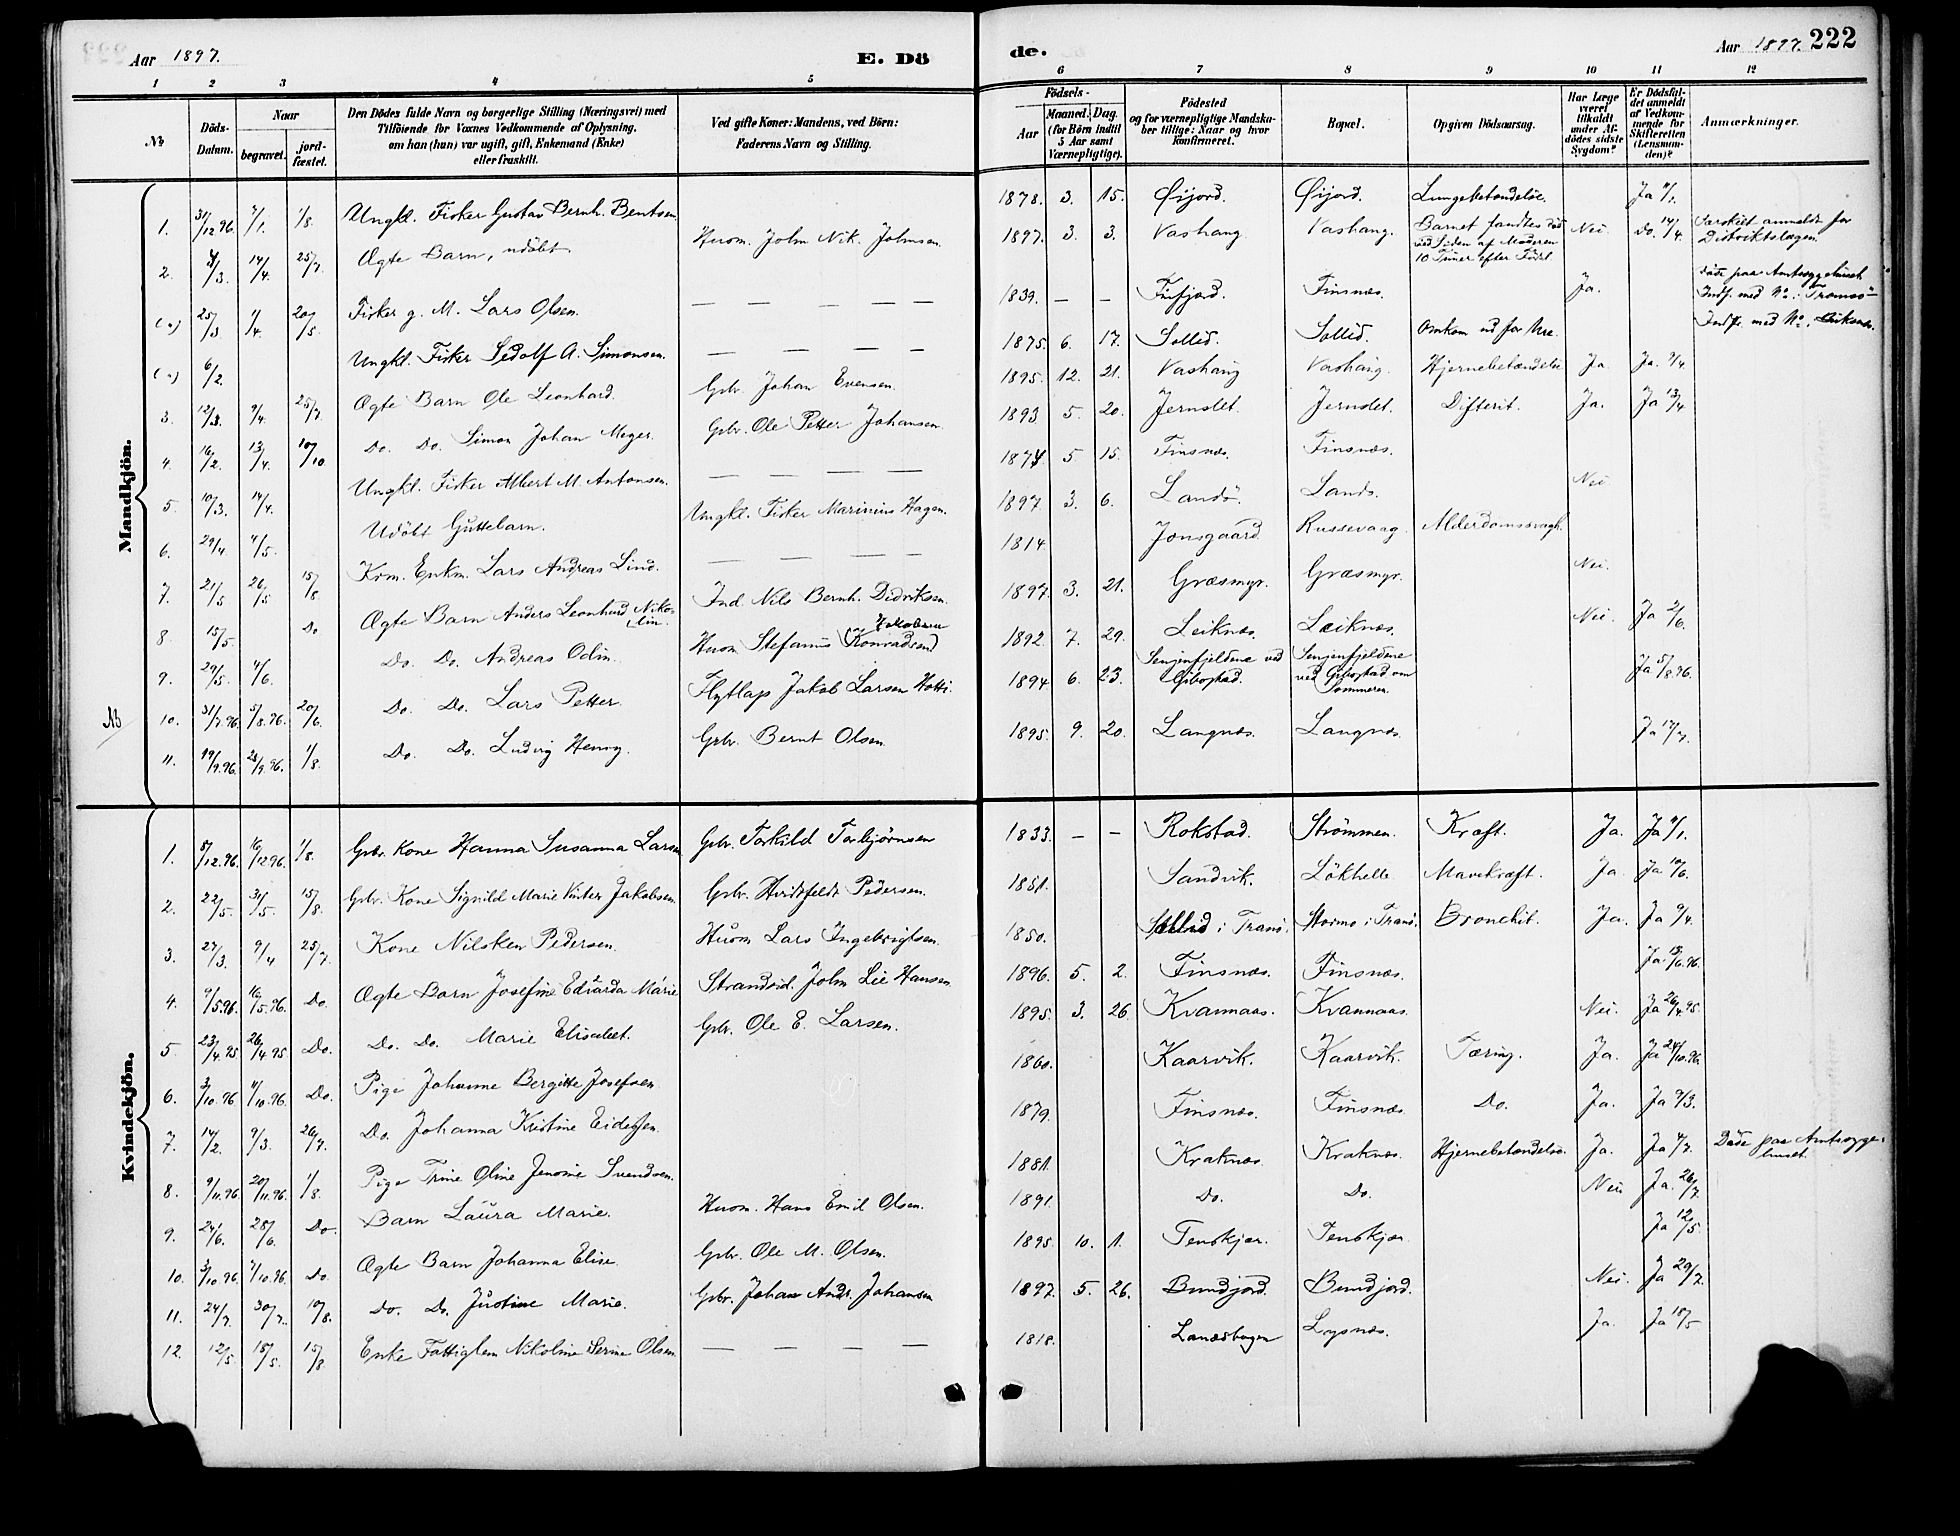 Aar 1897. E. Dö
de. Aar 1897. 222
1 2 3 4 5 6 7 8 9 10 11 12
No
Döds-Datum.
Naar
begravet.
jordfæstet.
Den Dödes fulde Navn og borgerlige Stilling (Næringsvei) med
Tilföiende for Voxnes Vedkommende af Oplysning,
om han (hun) var ugift, gift, Enkemand (Enke)
eller fraskilt.
Ved gifte Koner: Mandens, ved Börn:
Faderens Navn og Stilling.
Födsels-
Aar
Maaned. Dag.
(for Börn indtil
5 Aar samt
Værnepligtige).
Födested
og for værnepligtige Mandska-
ber tillige: Naar og hvor
konfirmeret.
Bopæl.
Opgiven Dödsaarsag.
Har Læge
været
tilkaldt
under Af-
dödes sidste
Sygdom?
Er Dödsfal-
det anmeldt
af Vedkom-
mende for
Skifteretten
(Lensman-
den)?
Anmærkninger.
Mandkjön.
1. 31/12 96. 7/1. 1/8. Ungkl. Fisker Gustav Bernh. Bentsen. 1878. 3. 15. Øijord. Øijord. Lungebetændelse.
2. 14/4. 25/7. Ægte Barn, udöbt. Husm. John Nik. Johnsen. 1897. 3. 3. Vashaug. Vashaug. Barnet fandtes död
ved Siden af Moderen
10 Timer efter Födsl. Nei. Do. 14/4. Særskilt anmeldt for
Distriktslægen
25/3 20/5. Fisker g. M. Lars Olsen. — — — — — 1839. — — Finfjord. Finsnæs. Ja. döde paa Amtssygehuset
Indf. med No. i Tromsö
6/2. Ungkl. Fisker Sedolf A. Simonsen. — — — — 1875. 6. 17. Sollid. Sollid. Omkom ud for Indf. med No.
3. 12/3. 9/4. 25/7. Ægte Barn Ole Leonhard. Gbr. Johan Evensen. 1895. 12. 21. Vashaug Vashaug. Hjernebetændelse Ja. Ja. 9/4.
4. 16/2. 13/4. 10/10. Do. Do. Simon Johan Meyer. Gbr. Ole Petter Johansen. 1893 5. 20. Jernslet. Jernslet. Difterit. Ja. Ja 13/4
5. 10/3. 14/4. Ungkl. Fisker Albert M. Antonsen. — — — — 1874. 5. 15. Finsnæs. Finsnæs.
6. 29/4. 4/5. Udöbt Guttebarn. Ungkl. Fisker Marinius Hagen. 1897. 3. 6. Sandö. Sands. Nei
7. 21/5 26/5 15/8 Enkm. Lars Andreas Lind. — — — — 1814 Jonsgaard Russevaag. Alderdomssvagh.
8. 15/5. Do Ægte Barn Anders Leonhard Niko-
lin. Ind. Nils Bernh. Didriksen. 1897. 3. 21. Græsmyr. Græsmyr. Nei.
9. 29/5. 4/6. Do. Do. Andreas Odin. Husm Stefanus Konradsen Jakobsen 1892. 7. 29. Leiknæs. Leiknæs. Nei. Ja 2/6.
NB 10. 31/7.96. 5/8.96. 20/6. Do. Do. Lars Petter. Flytlap Jakob Larsen Hotti. 1894 6. 23. Senjenfjeldene ved
Gibostad. Senjenfjeldene
ved Gibostad om
Sommeren. Ja 5/8.96.
11. 19/9.96. 28/9.96. 1/8. Do. Do. Ludvig Henry. Gbr. Bernt Olsen. 1895. 9. 20. Langnæs. Langnæs. Ja 17/7.
Kvindekjön.
1. 8/12.96. 16/12 96. 1/8. Gbr. Kone Hanna Susanna Larsen Gbr. Torkild Torbjörnsen 1833. — — Rokstad. Strömmen. Kræft. Ja.
2. 22/5. 31/5. 15/8. Gbr. Kone Signild Marie Vinter Jakobsen. Gbr. Hvidtfeldt Pedersen. 1851. Sandvik. Lökhelle Mavekræft. Ja. Ja 10/6.
3. 27/3. 9/4 25/7. Kone Nilsken Pedersen. Husm Lars Ingebrigtsen. 1850. Sollid i Tranö. Stormo i Tranö. Bronchit. Ja. Ja 9/4.
4. 9/5.96. 16/5.96. Do. Ægte Barn Josefine Edvarda Marie Strandsid. John Lie Hansen. 1896. 5. 2. Finsnæs. Finsnæs. Ja 13/6.96.
5. 23/4.95 26/4.95 Do. Do. Do. Marie Elisabet. Gbr. Ole E. Larsen. 1895. 3. 26. Kvannaas. Kvannaas. Nei. Ja 26/4.95
6. 3/10.96 11/10.96. Do. Pige Johanne Bergitte Josefsen. 1860. Kaarvik. Kaarvik. Tæring. Ja. Ja 24/10.96.
7. 14/2. 9/3. 26/7. Do. Johanna Kristine Eidesen. 1879. Finsnæs. Finsnæs. Do. Ja. Ja 9/3.
8. 9/11.96. 20/11.96. 1/8. Pige Trine Oline Jensine Svendsen. 1881. Kraknæs. Kraknæs. Hjernebetændelse. Ja. Döde paa Amtssyge-
huset.
9. 24/6. 28/6. Do. Barn Laura Marie. Husm. Hans Emil Olsen. 1891. Do. Do. Nei Ja. 26/7.
10. 3/10.96. 7/10.96. Do. Ægte Barn Johanna Elise. Gbr. Ole M. Olsen. 1895. 10. 1. Tenskjær. Tenskjær Ja 12/5.
11. 24/7. 30/7. 10/8. Do. Do. Justine Marie. Gbr. Johan Andr. Johansen 1897. 5. 26. Bundjord. Bundjord. Nei. Ja 29/7.
12. 12/5. 18/5. 15/8 Enke Fattiglem Nikoline Serine Olsen. — — — — — 1818. Lysnæs. Ja. Ja 18/5